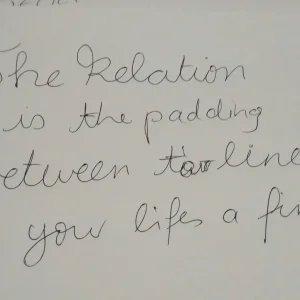 The Relation
is the padding
between line
your lifes a